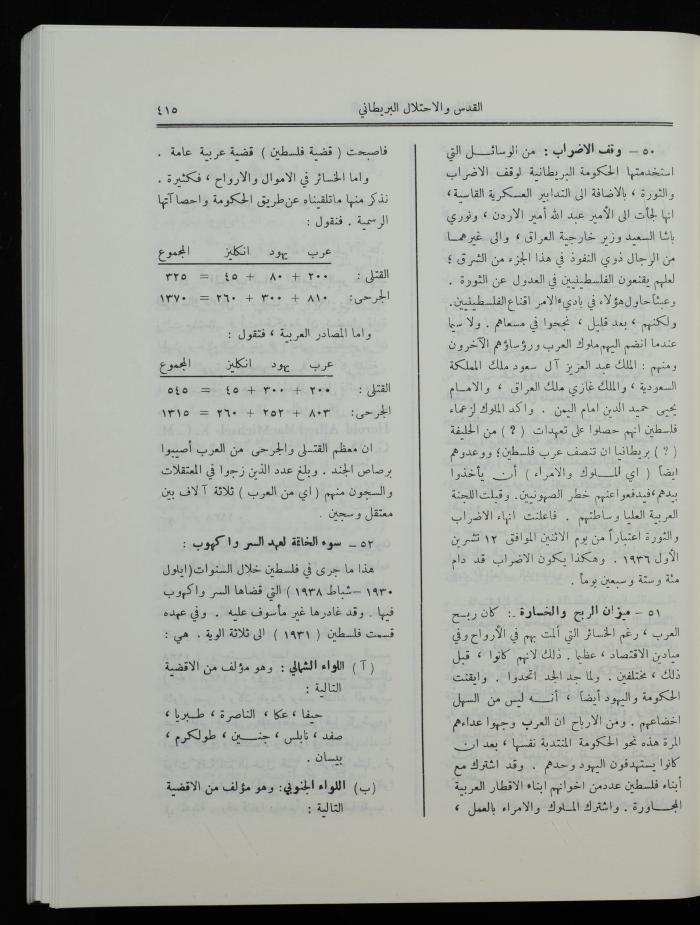 القدس والاحتلال البريطاني
٤١٥
٥٠ – وقف الاضراب : من الوسائل التي
استخدمتها الحكومة البريطانية لوقف الاضراب
والثورة ، بالاضافة الى التدابير العسكرية القاسية ،
انها لجأت الى الأمير عبد الله أمير الاردن ، ونوري
باشا السعيد وزير خارجية العراق ، والى غيرهما
من الرجال ذوي النفوذ في هذا الجزء من الشرق ؛
لعلهم يقنعون الفلسطينيين في العدول عن الثورة .
وعبثاً حاول هؤلاء في بادىء الامر اقناع الفلسطينيين .
ولكنهم ، بعد قليل ، نجحوا في مسعاهم . ولا سيما
عندما انضم اليهم ملوك العرب ورؤساؤهم الآخرون
ومنهم : الملك عبد العزيز آل سعود ملك المملكة
السعودية ، والملك غازي ملك العراق ، والامام
يحيى حميد الدين امام اليمن . واكد الملوك لزعماء
فلسطين انهم حصلوا على تعهدات ( ؟ ) من الحليفة
( ؟ ) بريطانيا ان تنصف عرب فلسطين ؛ ووعدوهم
ايضاً ( اي الملوك والامراء ) أن يأخذوا
بيدهم ، فيدفعوا عنهم خطر الصهونيين . وقبلت اللجنة
العربية العليا وساطتهم . فاعلنت انهاء الاضراب
والثورة اعتباراً من يوم الاثنين الموافق ١٢ تشرين
الأول ١٩٣٦ . وهكذا يكون الاضراب قد دام
مئة وستة وسبعين يوماً .
٥١ – ميزان الربح والخسارة .: كان ربح
العرب ، رغم الخسائر التي ألمت بهم في الأرواح وفي
ميادين الاقتصاد ، عظيما . ذلك لانهم كانوا ، قبل
ذلك ، مختلفين . ولما جد الجد اتحدوا . وايقنت
الحكومة واليهود أيضاً ، أنه ليس من السهل
اخضاعهم . ومن الارباح ان العرب وجهوا عداءهم
المرة هذه نحو الحكومة المنتدبة نفسها ، بعد ان
كانوا يستهدفون اليهود وحدهم . وقد اشترك مع
أبناء فلسطين عدد من اخوانهم ابناء الاقطار العربية
المجاورة . واشترك الملوك والامراء بالعمل ،
فاصبحت ( قضية فلسطين ) قضية عربية عامة .
واما الخسائر في الاموال والارواح ، فكثيرة .
نذكر منها ماتلقيناه عن طريق الحكومة واحصاآتها
الرسمية . فنقول :
عرب يهود انكليز المجموع
القتلى : ٢٠٠ + ٨٠ + ٤٥ = ٣٢٥
الجرحى: ٨١٠ + ٣٠٠ + ٢٦٠ = ١٣٧٠
واما المصادر العربية ، فتقول :
عرب يهود انكليز المجموع
القتلى : ٢٠٠ + ٣٠٠ + ٤٥ = ٥٤٥
الجرحى: ٨٠٣ + ٢٥٢ + ٢٦٠ = ١٣١٥
ان معظم القتلى والجرحى من العرب أصيبوا
برصاص الجند . وبلغ عدد الذين زجوا في المعتقلات
والسجون منهم ( اي من العرب ) ثلاثة آلاف بين
معتقل وسجين .
٥٢ – سوء الخاتمة لعهد السر واكهوب :
هذا ما جرى في فلسطين خلال السنوات ( ايلول
١٩٣٠ – شباط ١٩٣٨ ) التي قضاها السر واكهوب
فيها . وقد غادرها غير مأسوف عليه . وفي عهده
قسمت فلسطين ( ١٩٣١ ) الى ثلاثة الوية . هي :
( آ ) اللواء الشمالي : وهو مؤلف من الاقضية
التالية :
حيفا ، عكا ، الناصرة ، طبريا ،
صفد ، نابلس ، جنين ، طولكرم ،
بيسان .
(ب) اللواء الجنوبي: وهو مؤلف من الاقضية
التالية :